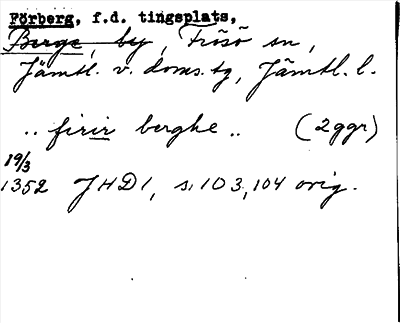 Förberg, f.d. tingsplats,
Berge, by, Frösö sn,
Jämtl. v. doms. tg, Jämtl. l.
.. firir berghe .. (2 ggr)
19/3
1352 JHD 1, s. 103, 104 orig.